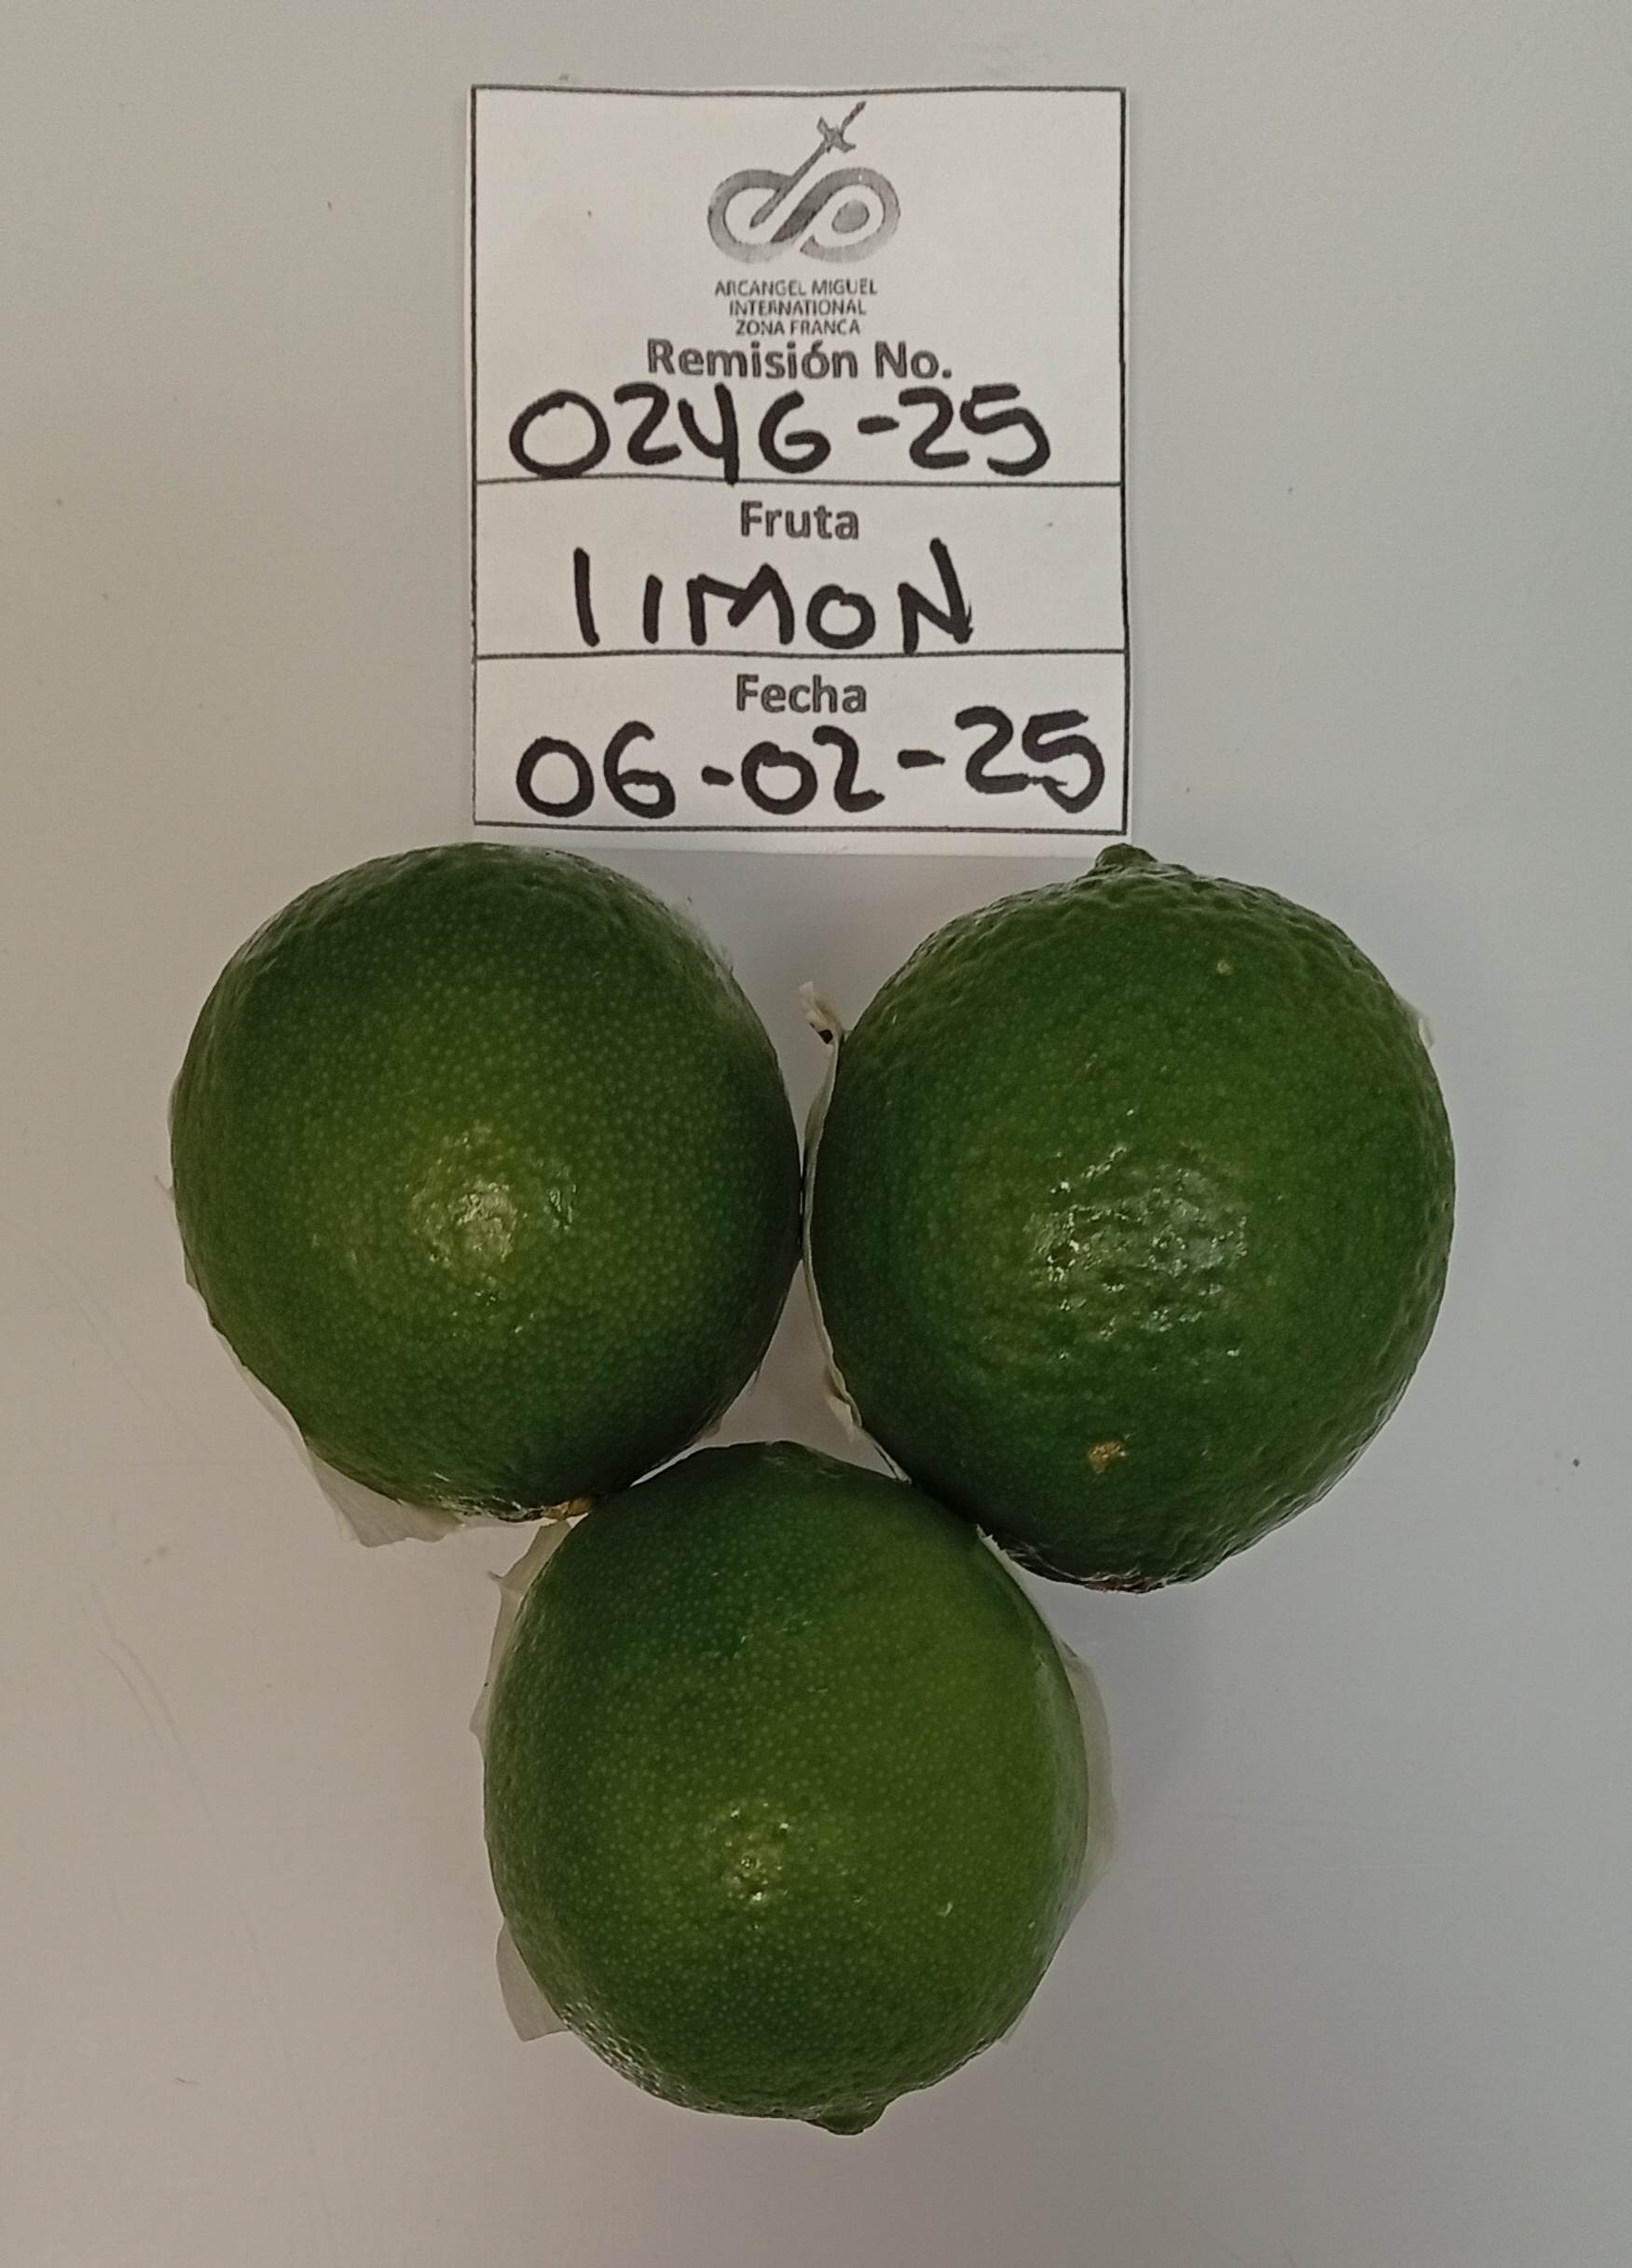 ARCANGEL MIGUEL
INTERNATIONAL
ZONA FRANCA
Remisión No.
0246-25
Fruta
lIMON
Fecha
06-02-25